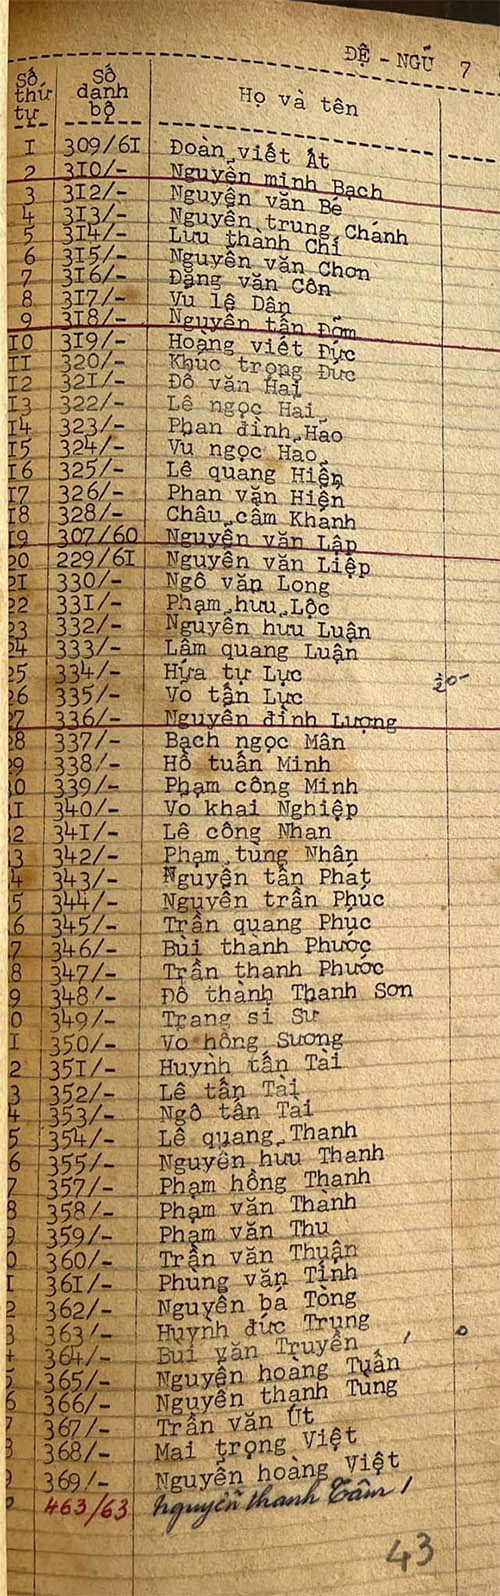 ĐỆ - NGŨ 7
Số thứ tự Số danh bộ Họ và tên
1 309/61 Đoàn viết Ất
2 310/- Nguyễn minh Bạch
3 312/- Nguyễn văn Bé
4 313/- Nguyễn trung Chánh
5 314/- Lưu thành Chí
6 315/- Nguyễn văn Chơn
7 316/- Đặng văn Côn
8 317/- Vu lê Dân
9 318/- Nguyễn tấn Đởm
10 319/- Hoàng viết Đức
11 320/- Khúc trọng Đức
12 321/- Đỗ văn Hai
13 322/- Lê ngọc Hai
14 323/- Phan đình Hao
15 324/- Vu ngọc Hao
16 325/- Lê quang Hiển
17 326/- Phan văn Hiển
18 328/- Châu cẩm Khánh
19 307/60 Nguyễn văn Lập
20 229/61 Nguyễn văn Liệp
21 330/- Ngô văn Long
22 331/- Phạm hưu Lộc
23 332/- Nguyễn hưu Luận
24 333/- Lâm quang Luận
25 334/- Hứa tự Lực
26 335/- Vo tấn Lực
27 336/- Nguyễn đình Lượng
28 337/- Bạch ngọc Mân
29 338/- Hồ tuấn Minh
30 339/- Phạm công Minh
31 340/- Vo khai Nghiệp
32 341/- Lê công Nhan
33 342/- Phạm tùng Nhân
34 343/- Nguyễn tấn Phat
35 344/- Nguyễn trần Phúc
36 345/- Trần quang Phục
37 346/- Bùi thành Phước
38 347/- Trần thanh Phước
39 348/- Đỗ thành Thanh Sơn
0 349/- Trang si Sư
1 350/- Vo hồng Sương
2 351/- Huỳnh tấn Tài
3 352/- Lê tấn Tài
4 353/- Ngô tấn Tai
5 354/- Lê quang Thanh
6 355/- Nguyễn hưu Thanh
7 357/- Phạm hồng Thanh
8 358/- Phạm văn Thành
9 359/- Phạm văn Thu
0 360/- Trần văn Thuận
1 361/- Phùng văn Tính
2 362/- Nguyễn bá Tòng
3 363/- Huỳnh đức Trung
4 364/- Bui văn Truyền
5 365/- Nguyễn hoàng Tuấn
6 366/- Nguyễn thanh Tùng
7 367/- Trần văn Út
8 368/- Mai trọng Việt
9 369/- Nguyễn hoàng Việt
0 463/63 Nguyễn thanh Tâm
43